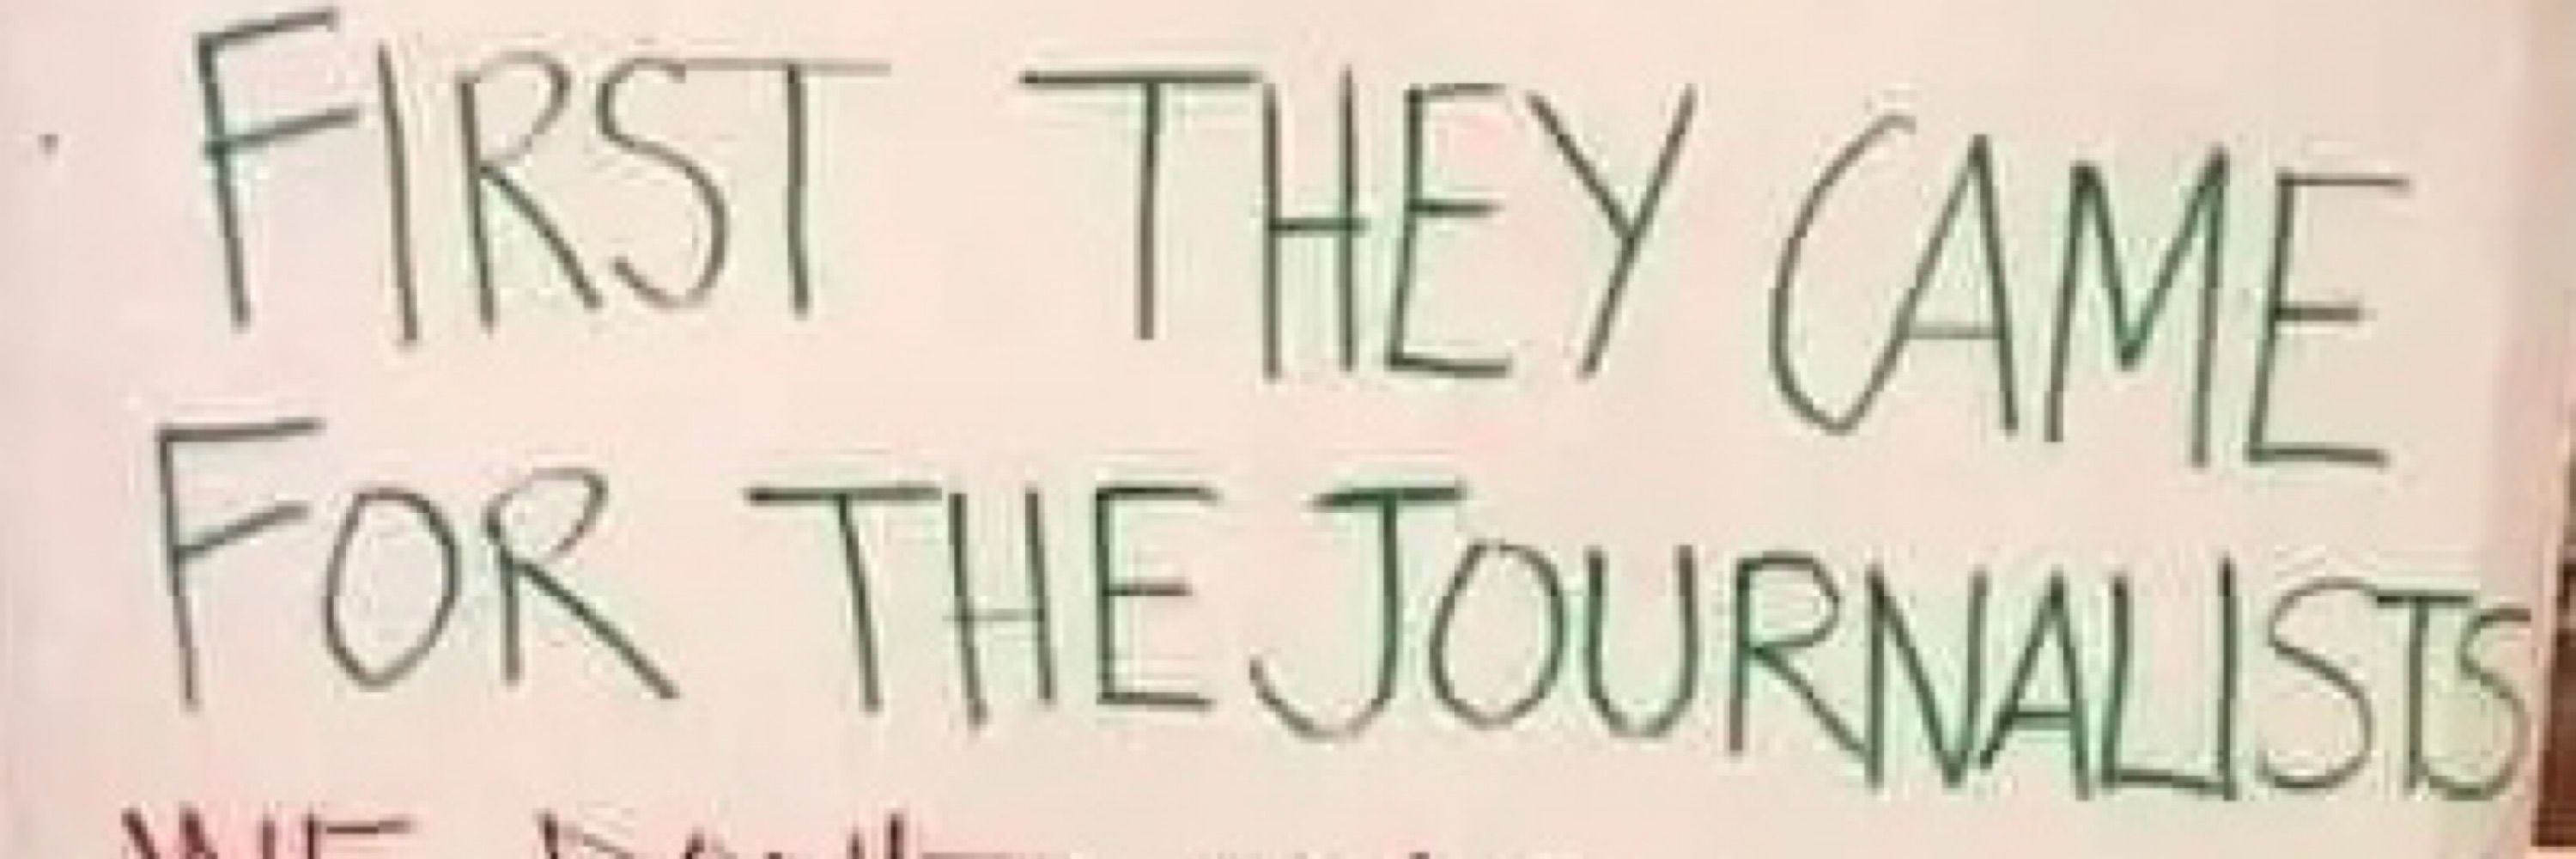 FIRST THEY CAME
FOR THE JOURNALISTS
WE DON'T